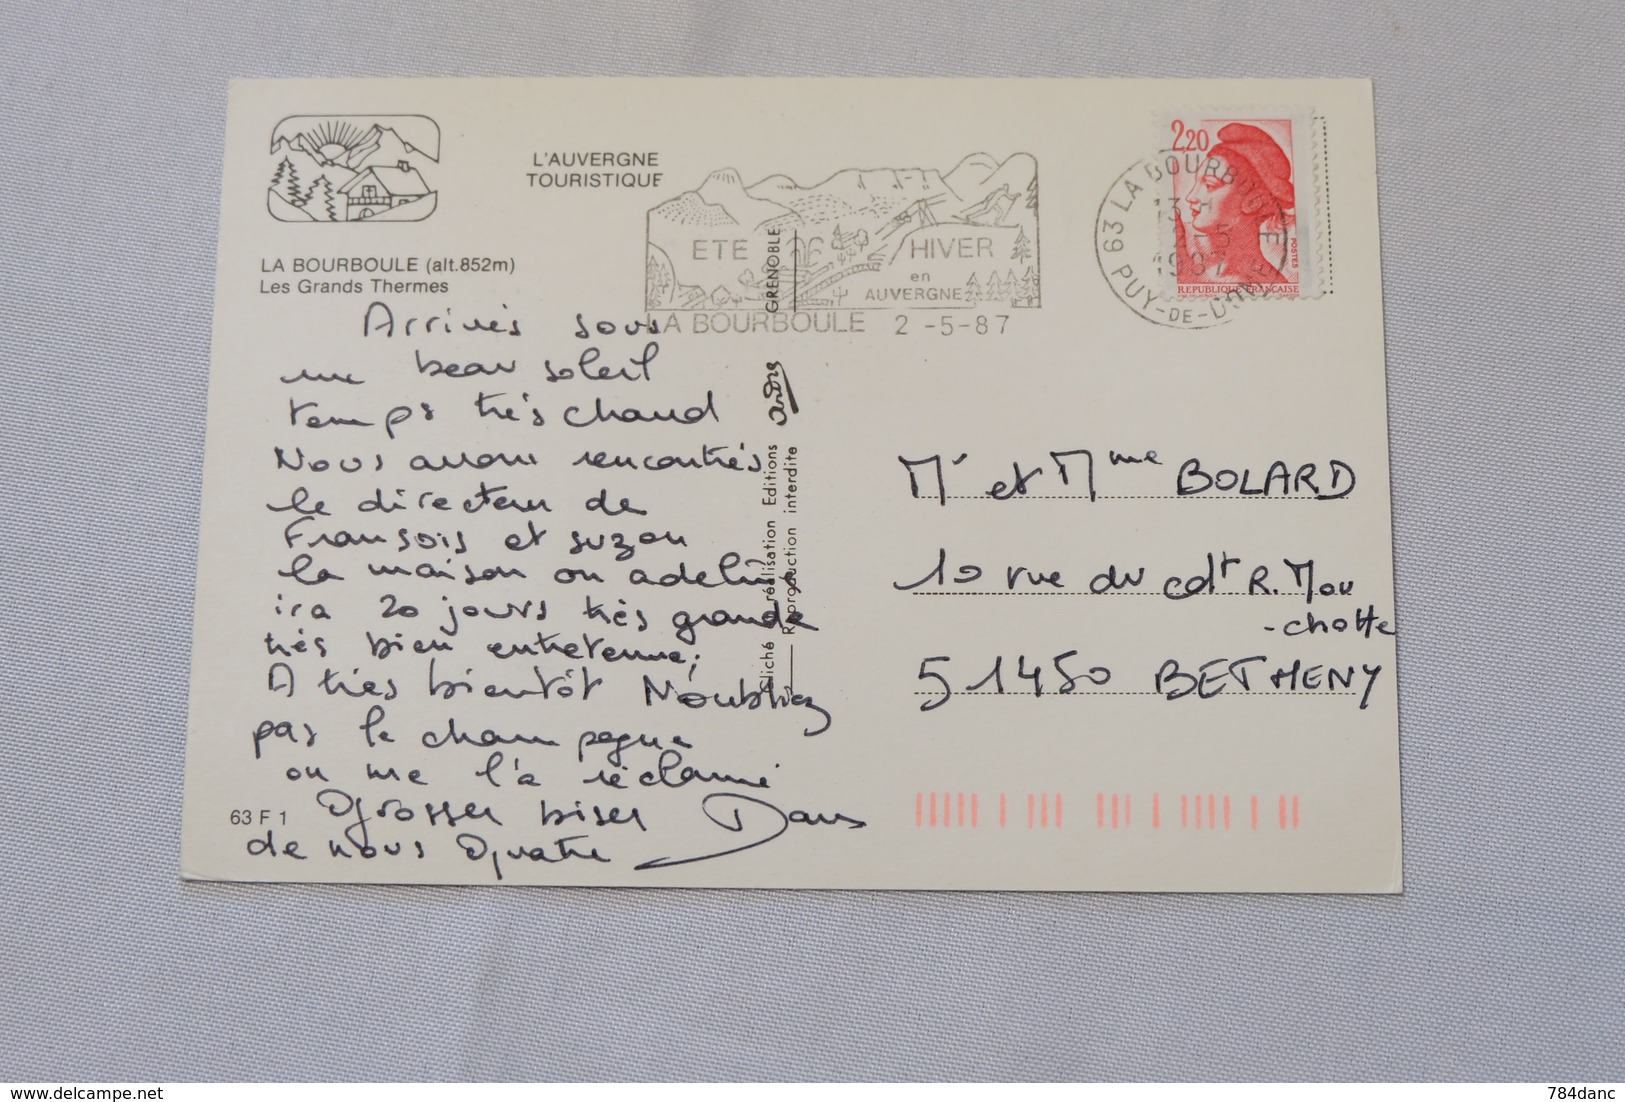 L'AUVERGNE
TOURISTIQUE
LA BOURBOULE (alt.852m)
Les Grands Thermes
ETE
HIVER
en
AUVERGNE
LA BOURBOULE 2 -5-87
63 LA BOURBOULE
13H
2-5
1987
PUY-DE-DOME
2,20
POSTES
REPUBLIQUE FRANCAISE
Arrivés sous
un beau soleil
temps très chaud
Nous avons rencontrés
le directeur de
Fransois et suzon
la maison ou adeline
ira 20 jours très grande
très bien entretenue;
A très bientôt N'oubliez
pas le champagne
on me l'a réclamé
Grosser biser
de nous quatre
GRENOBLE
André
Cliché réalisation Editions
Reproduction interdite
Mr et Mme BOLARD
10 rue du cdt R. Mou
-chotte
51450 BETHENY
63 F 1
www.delcampe.net
784danc